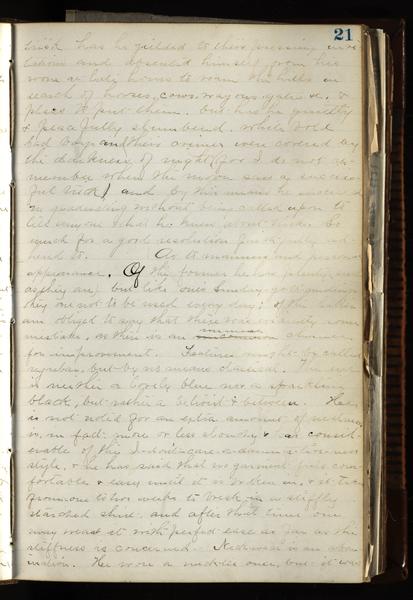 21
trick has he yielded to their pressing invi
tations and absented himself from his
home at late hours to roam the hills in
search of horses, cows, wagons, gates &c. &
place to put them. but has he quietly
& peacefully slumbered. while bold
bad boys and their crimes were covered by
the darkness of night (for I do not re-
member when the moon saw a success-
ful trick) and by this means he succeeded
in graduating without being called upon to
tell anyone what he knew about tricks. So
much for a good resolution faithfully ad
hered to. As to manners and personal
appearance. Of the former he has plenty such
as they are, but like one's Sunday go to meeting
they are not to be used every day; of the latter
am obliged to say that there was evidently some
mistake, as there is an immense chance
for improvement. Features might be called
regular, but by no means classical. The eye
is neither a lovely blue nor a sparkling
black, but rather a betwixt & between. He
is not noted for an extra amount of neatness
is in fact more or less slouchy & has consid-
erable of the I-don't-care-a-damn-ativeness
style, & he has said that no garment feels com-
fortable & easy until it is broken in, & it takes
from one to two weeks to break in a stiffly
starched shirt, and after that time one
may wear it with perfect ease as far as the
stiffness is concerned. Neckwear is an abom
ination. He wore a necktie once, but it was